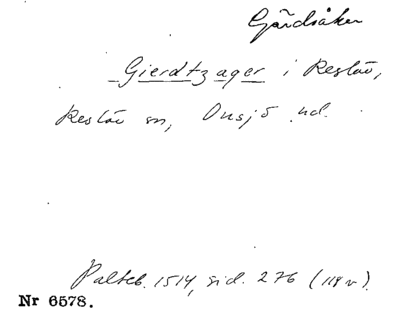 Gårdsåker
Gierdtzager i Reslöv,
Reslöv sn, Onsjö hd.
Palteb. 1514, sid. 276 (118 v).
Nr 6578.